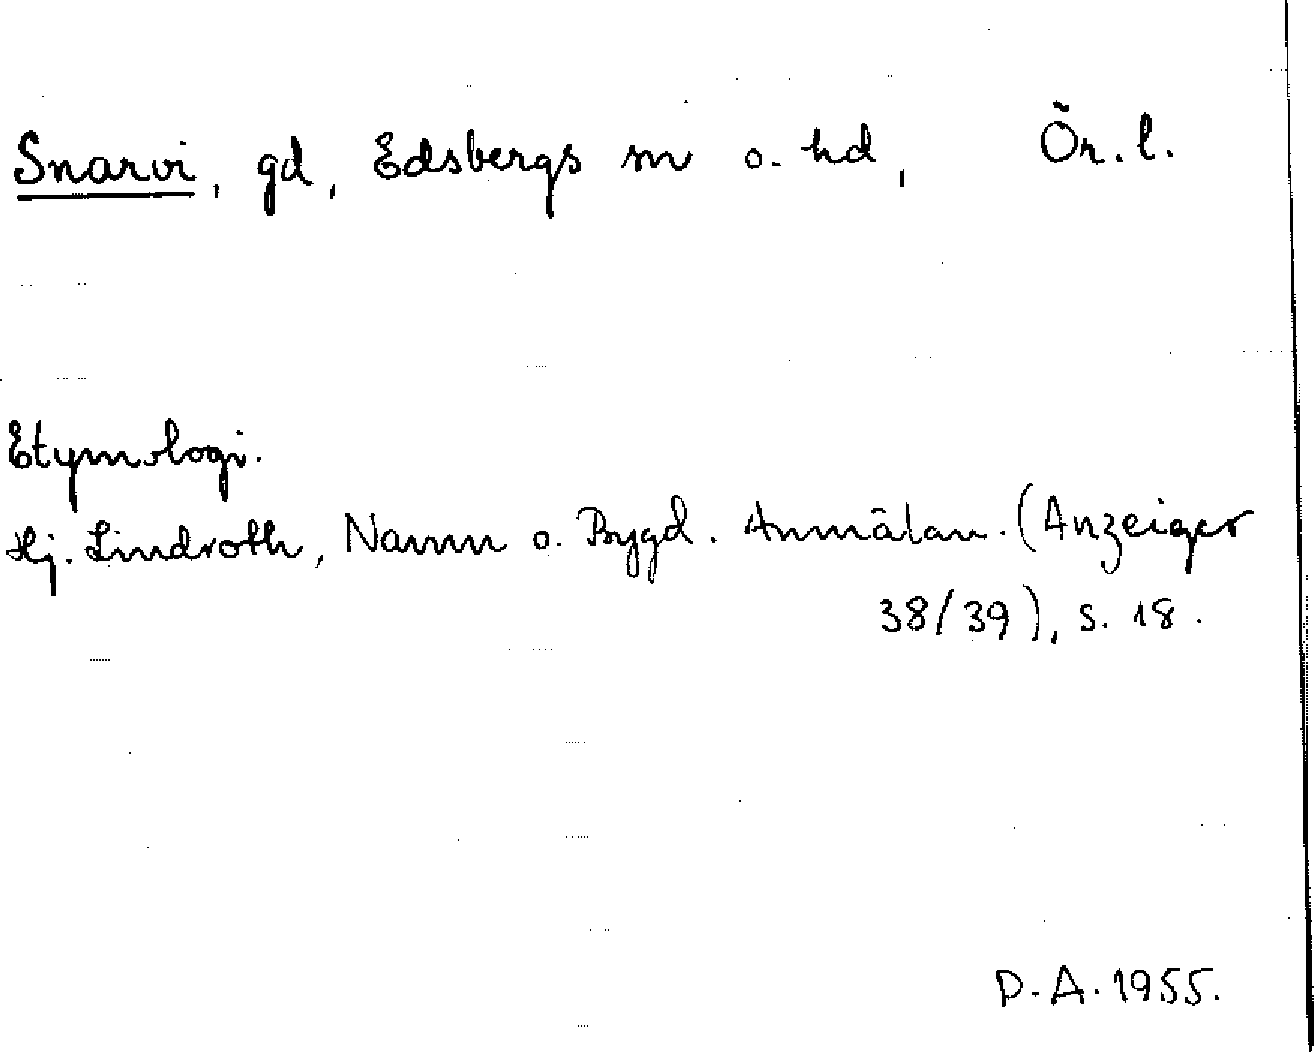 Snarvi, gd, Edsbergs sn o. hd, Ör. l.
Etymologi.
Hj. Lindroth, Namn o. Bygd. Anmälan. (Anzeiger
38/39), s. 18.
D. A. 1955.